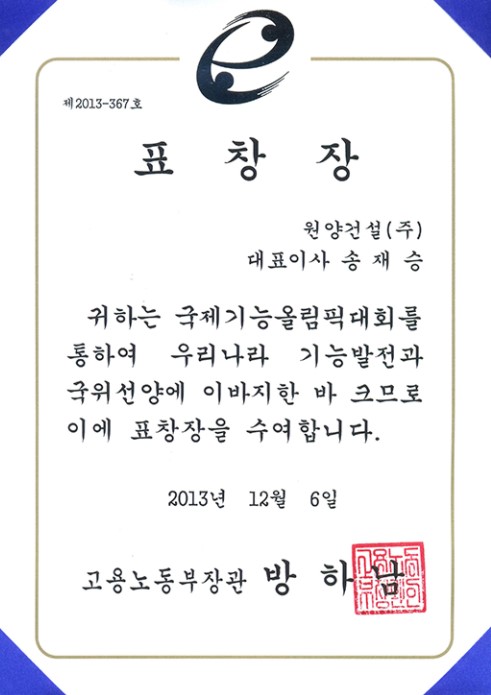 제2013-367호
표 창 장
원양건설(주)
대표이사 송 재 승
귀하는 국제기능올림픽대회를
통하여 우리나라 기능발전과
국위선양에 이바지한 바 크므로
이에 표창장을 수여합니다.
2013년 12월 6일
고용노동부장관 방 하 남